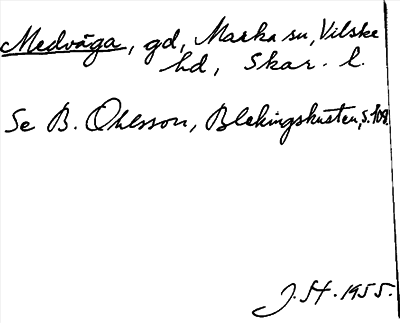 Medvåga, gd, Marka sn, Vilske
hd, Skar. l.
Se B. Ohlsson, Blekingskusten, s. 109.
J. St. 1955.